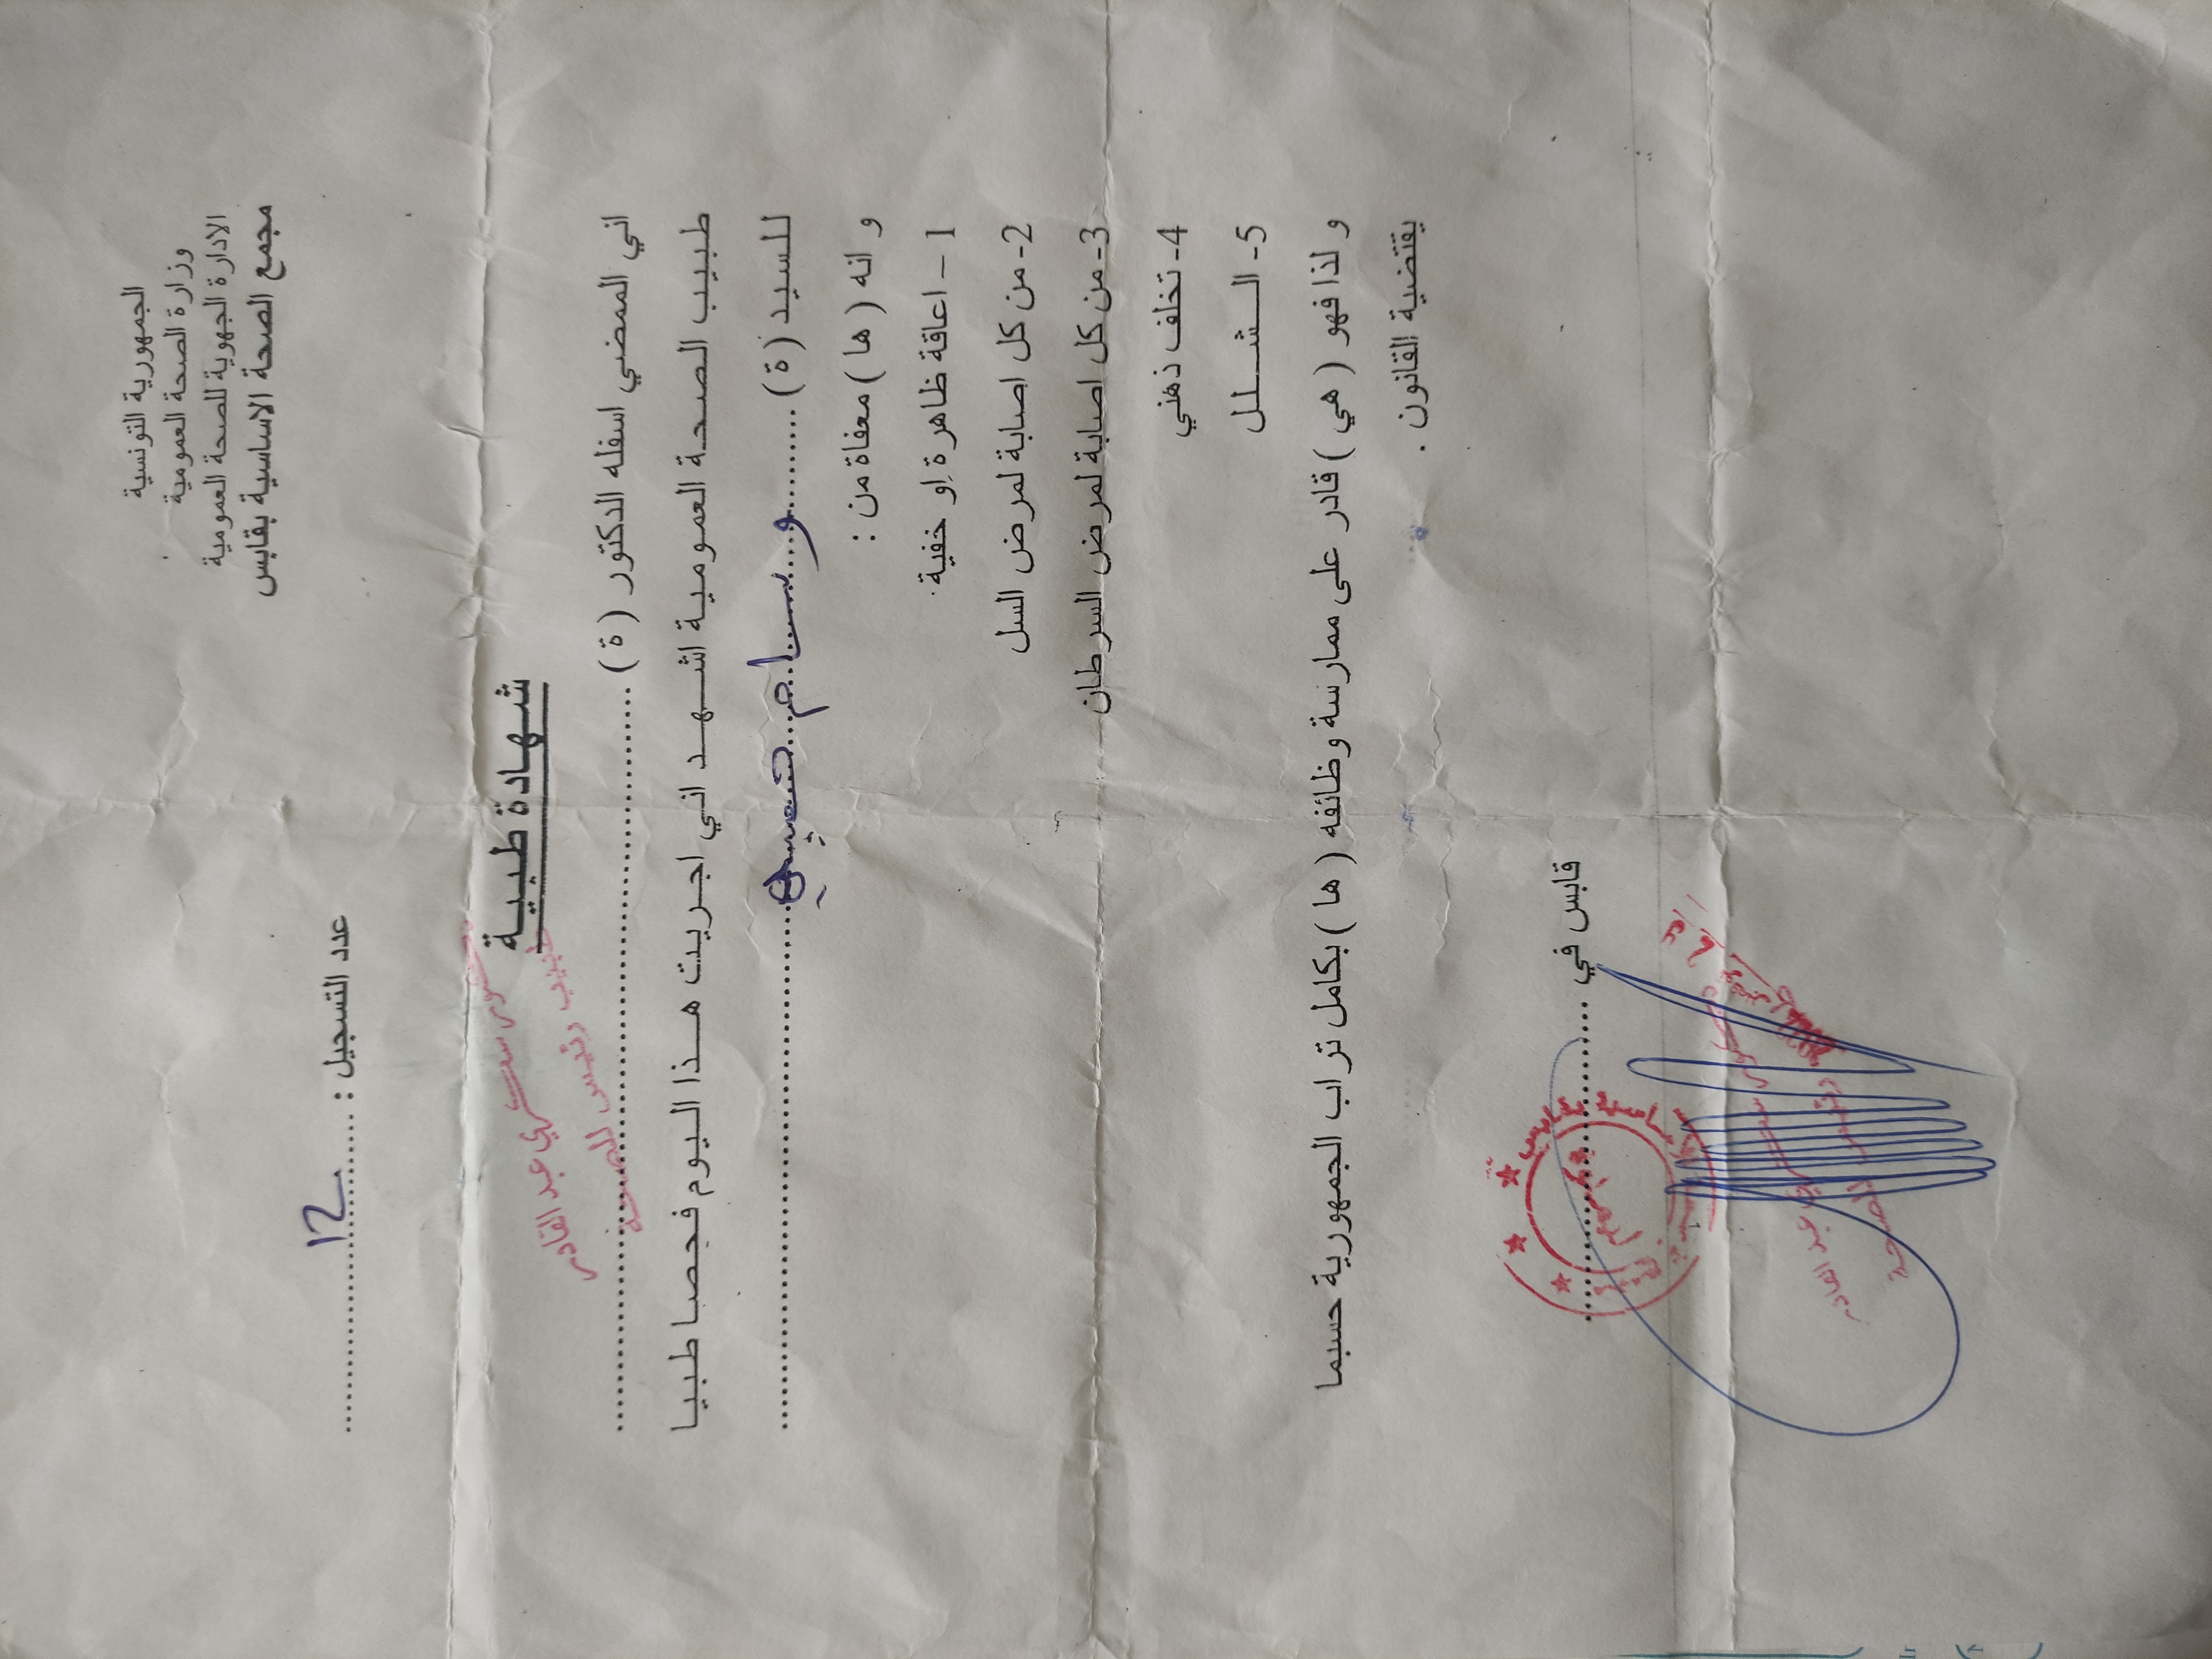 الجمهورية التونسية
وزارة الصحة العمومية
الادارة الجهوية للصحة العمومية
مجمع الصحة الاساسية بقابس
عدد التسجيل : ......12......
شهادة طبية
اني الممضي اسفله الدكتور ( ة ) ............
عبد القادر
طبيب رئيس للصحة
طبيب الصحة العمومية اشهد اني اجريت هذا اليوم فحصا طبيا
للسيد ( ة ) ..........وسام............
و انه ( ها ) معفاة من :
1 – اعاقة ظاهرة او خفية .
2- من كل اصابة لمرض السل
3- من كل اصابة لمرض السرطان
4- تخلف ذهني
5- الشلل
و لذا فهو ( هي ) قادر على ممارسة وظائفه ( ها ) بكامل تراب الجمهورية حسبما
يقتضية القانون .
قابس في ............
عبد القادر
رئيس للصحة